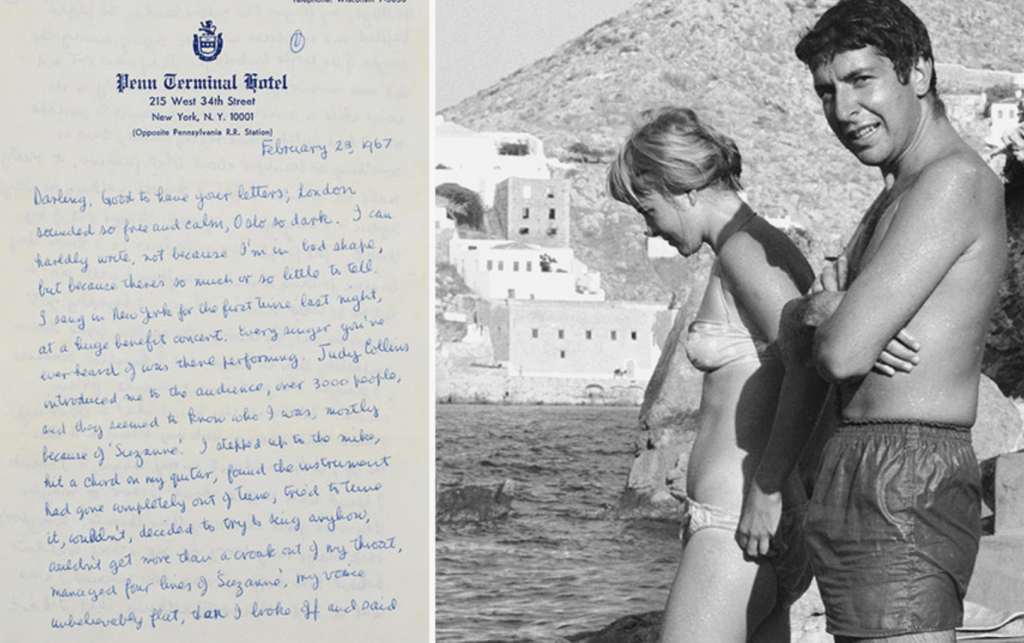 Telephone: Wisconsin 7-5050
①
Penn Terminal Hotel
215 West 34th Street
New York, N. Y. 10001
(Opposite Pennsylvania R.R. Station)
February 23, 1967
Darling, Good to have your letters; London
sounded so free and calm, Oslo so dark. I can
hardly write, not because I'm in bad shape,
but because there's so much or so little to tell.
I sang in New York for the first time last night,
at a huge benefit concert. Every singer you've
ever heard of was there performing. Judy Collins
introduced me to the audience, over 3000 people,
and they seemed to know who I was, mostly
because of 'Suzanne'. I stepped up to the mike,
hit a chord on my guitar, found the instrument
had gone completely out of tune, tried to tune
it, couldn't, decided to try to sing anyhow,
couldn't get more than a croak out of my throat,
managed four lines of 'Suzanne', my voice
unbelievably flat, then I broke off and said